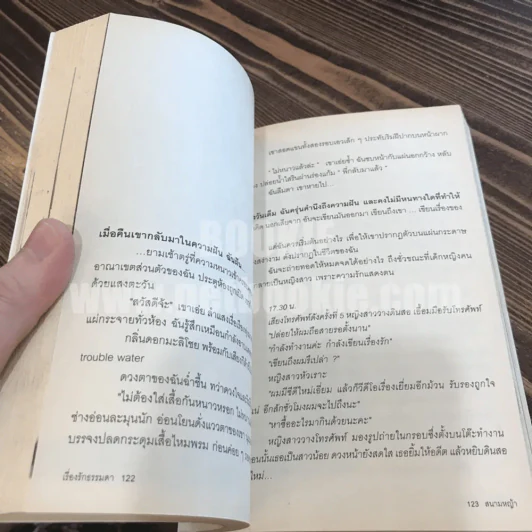 เมื่อคืนเขากลับมาในความฝัน ฉันลืม
...ยามเช้าตรู่ที่ความหนาว
อาณาเขตส่วนตัวของฉัน ประตูห้องถูกเปิด
ด้วยแสงตะวัน
"สวัสดีจ้ะ" เขาเอ่ย ลำแสงเรื่อ
แผ่กระจายทั่วห้อง ฉันรู้สึกเหมือนกำลัง
กลิ่นดอกมะลิโชย พร้อมกับเสียง
trouble water
ดวงตาของฉันฉ่ำชื้น ทว่าดวงใจ
"ไม่ต้องใส่เสื้อกันหนาวหรอก ไม่
ช่างอ่อนละมุนนัก อ่อนโยนดั่งแววตาของเขา
บรรจงปลดกระดุมเสื้อไหมพรม ก่อนค่อย ๆ
เรื่องรักธรรมดา 122
เขาสอดแขนทั้งสองรอบเอวเล็ก ๆ ประทับริมฝีปากบนหน้าผาก
"ไม่หนาวแล้วล่ะ" เขาเอ่ยซ้ำ ฉันซบหน้ากับแผ่นอกกว้าง หลับ
ปล่อยน้ำใสรินผ่านร่องแก้ม "พี่กลับมาแล้ว"
ฉันลืมตา เขาหายไป...
วันเดิม ฉันครุ่นคำนึงถึงความฝัน และคงไม่มีหนทางใดที่ทำให้
นอกเสียจาก ฉันจะเขียนมันออกมา เขียนถึงเขา ... เขียนเรื่องของ
แต่ฉันควรเริ่มต้นอย่างไร เพื่อให้เขาปรากฏตัวบนแผ่นกระดาษ
สง่างาม ดังปรากฏในชีวิตของฉัน
ฉันจะถ่ายทอดให้หมดจดได้อย่างไร ถึงชั่วขณะที่เด็กหญิงคน
กลายเป็นหญิงสาว เพราะความรักแสดงตน
17.30 น.
เสียงโทรศัพท์ดังครั้งที่ 5 หญิงสาววางดินสอ เอื้อมมือรับโทรศัพท์
"ปล่อยให้ผมถือสายรอตั้งนาน"
"กำลังทำงานค่ะ กำลังเขียนเรื่องรัก"
"เขียนถึงผมรึเปล่า ?"
หญิงสาวหัวเราะ
"ผมมีซีดีใหม่เอี่ยม แล้วก็วีดีโอเรื่องเยี่ยมอีกม้วน รับรองถูกใจ
อีกสักชั่วโมงผมจะไปถึงนะ"
"หาซื้ออะไรมากินด้วยนะคะ"
หญิงสาววางโทรศัพท์ มองรูปถ่ายในกรอบซึ่งตั้งบนโต๊ะทำงาน
นั้นเธอเป็นสาวน้อย ดวงหน้ายังสดใส เธอยิ้มให้อดีต แล้วหยิบดินสอ
ใหม่...
123 สนามหญ้า